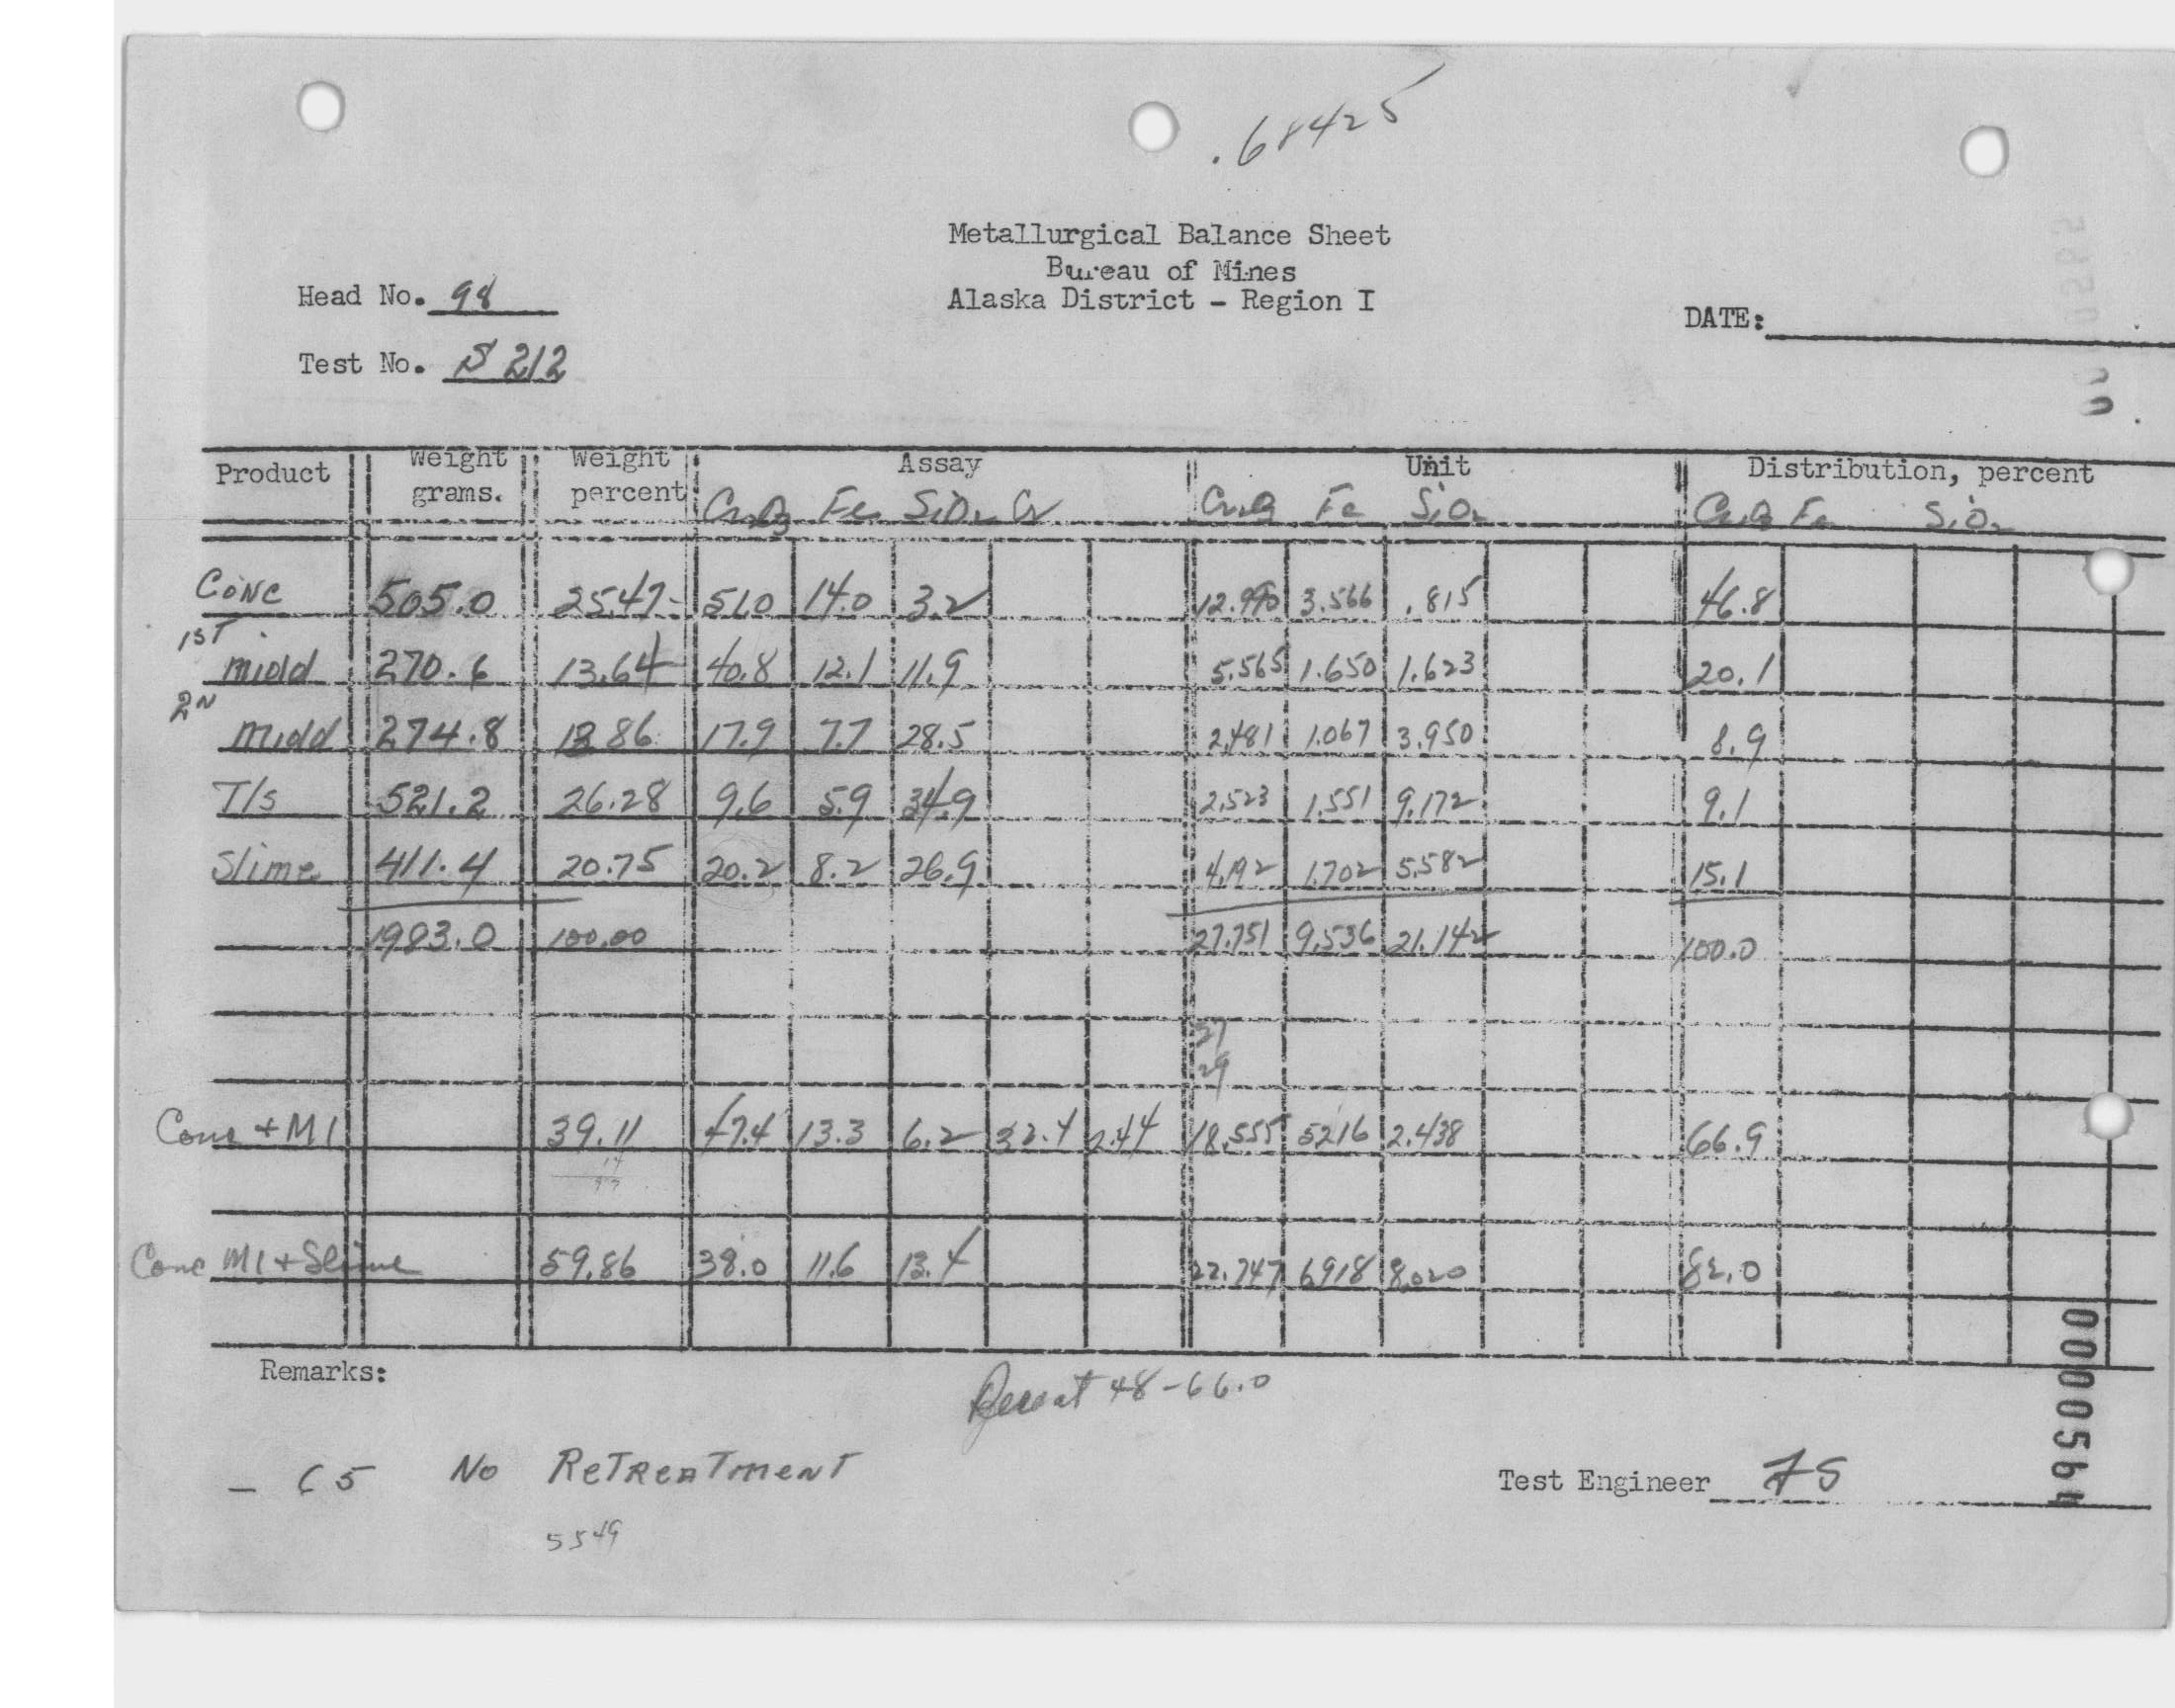 .68425
Metallurgical Balance Sheet
Bureau of Mines
Alaska District - Region I
Head No. 98
Test No. S 212
DATE:
Product Weight grams. Weight percent Assay Unit Distribution, percent
Cr2O3 Fe SiO2 Cr Cr2O3 Fe SiO2 Cr2O3 Fe SiO2
Conc 505.0 25.47 51.0 14.0 3.2 12.990 3.566 .815 46.8
1ST midd 270.6 13.64 40.8 12.1 11.9 5.565 1.650 1.623 20.1
2N midd 274.8 13 86 17.9 7.7 28.5 2.481 1.067 3.950 8.9
T/s 521.2 26.28 9.6 5.9 34.9 2.523 1.551 9.172 9.1
Slime 411.4 20.75 20.2 8.2 26.9 4.192 1.702 5.582 15.1
1983.0 100.00 27.751 9.536 21.142 100.0
37
29
Conc + M1 39.11 47.4 13.3 6.2 32.4 2.44 18.555 5216 2.438 66.9
Conc M1 + Slime 59.86 38.0 11.6 13.4 22.747 6918 8.020 82.0
Remarks:
48-66.0
- 65 No ReTReaTmenT
Test Engineer FS
5549
0000564